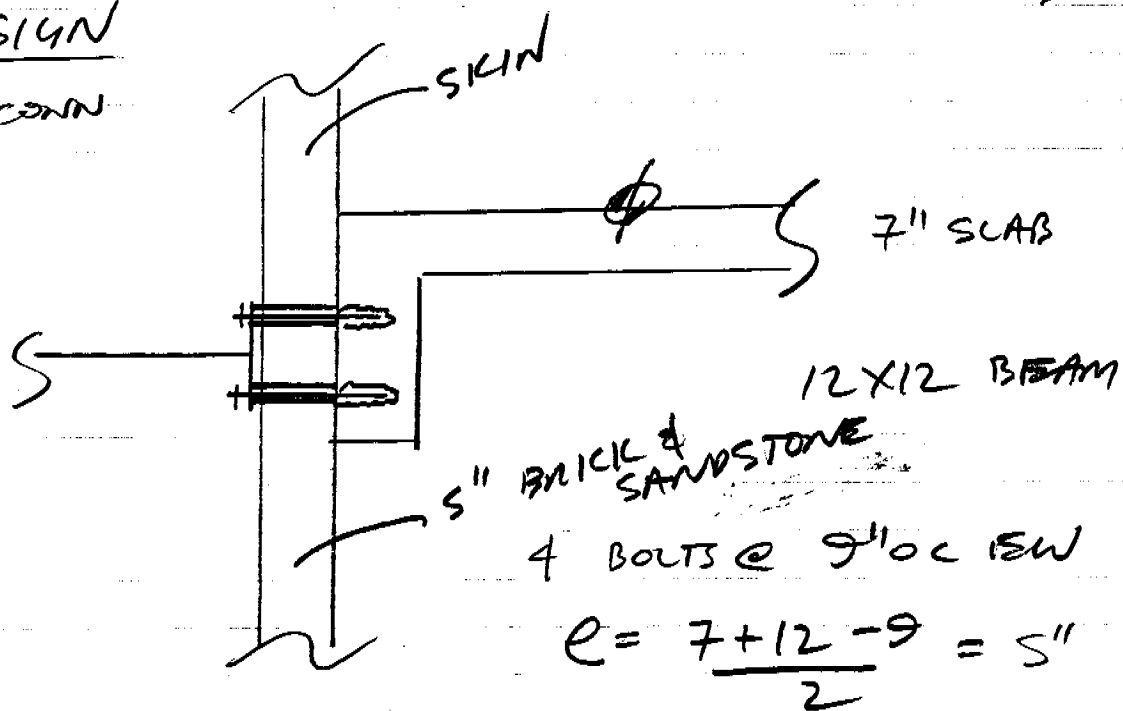 SIGN
CONN
SKIN
7" SLAB
12X12 BEAM
5" BRICK &
SANDSTONE
4 BOLTS @ 9"OC EW
e = 7+12-9 = 5"
2